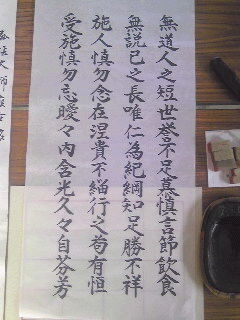 無道人之短世誉不足慕慎言節飲食
無説己之長唯仁為紀綱知足勝不祥
施人慎勿念在涅貴不緇行之苟有恒
受施慎勿忘曖々内含光久々自芬芳
大師